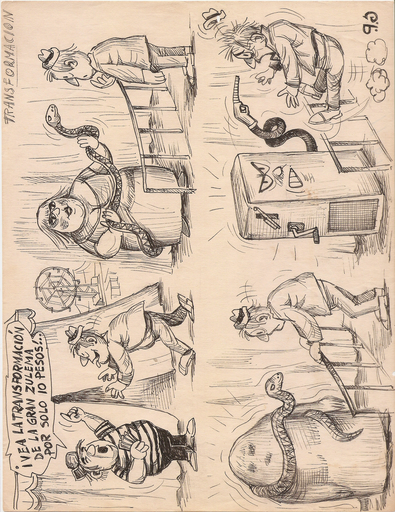 TRANSFORMACION
¡VEA LA TRANSFORMACIÓN
DE LA GRAN ZULEMA
POR SOLO 10 PESOS...